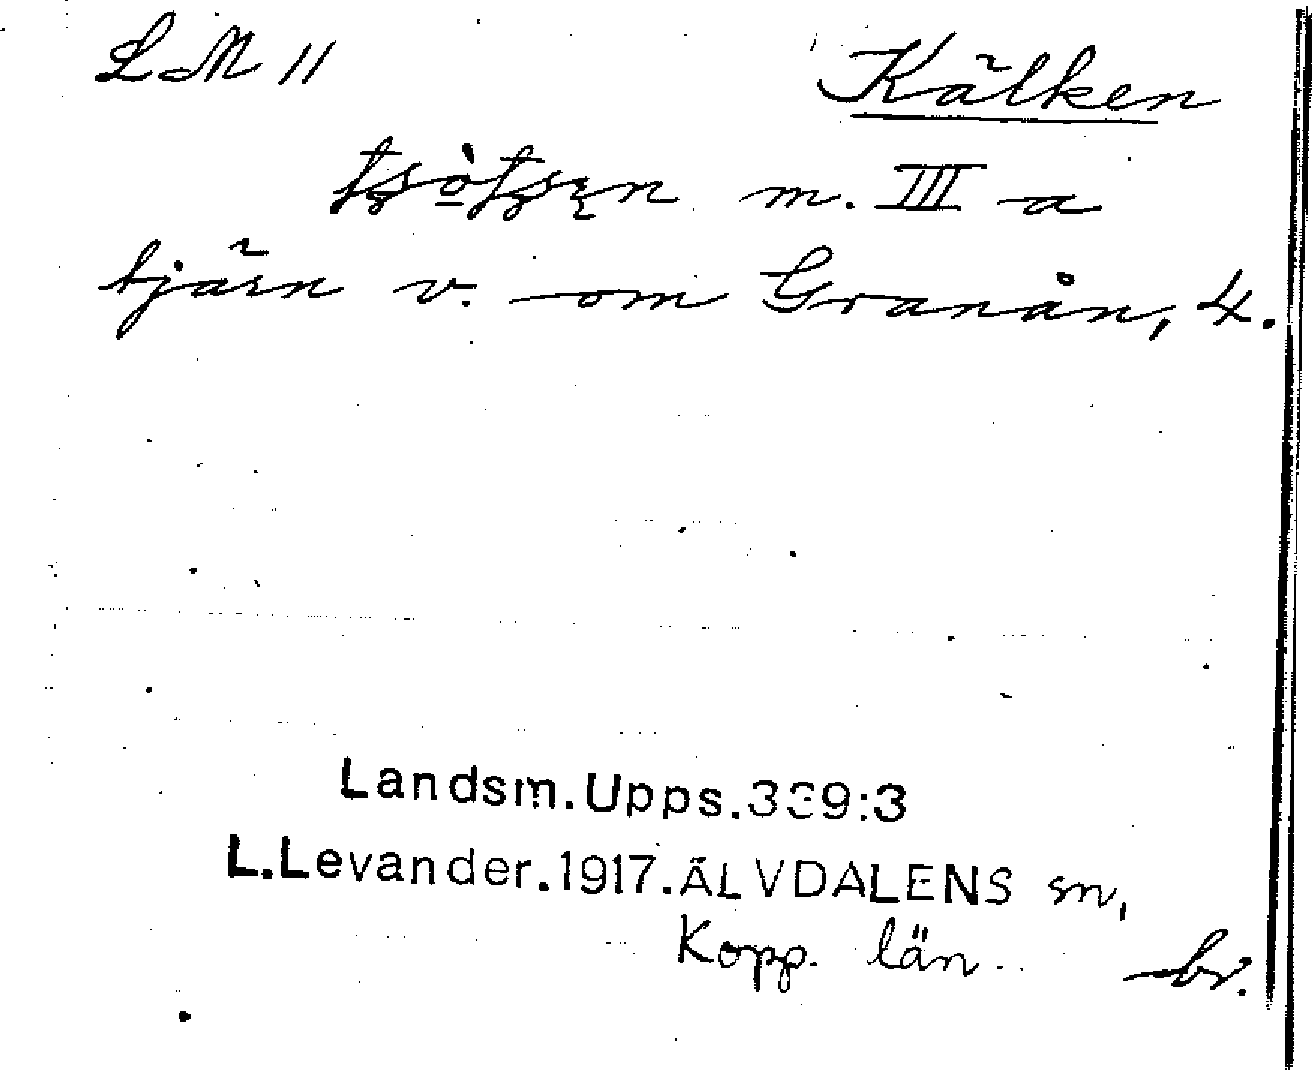 LM 11
Kälken
m. III a
tjärn v. om Granån, 4.
Landsm.Upps.339:3
L.Levander.1917.ÄLVDALENS sn,
Kopp. län.
br.